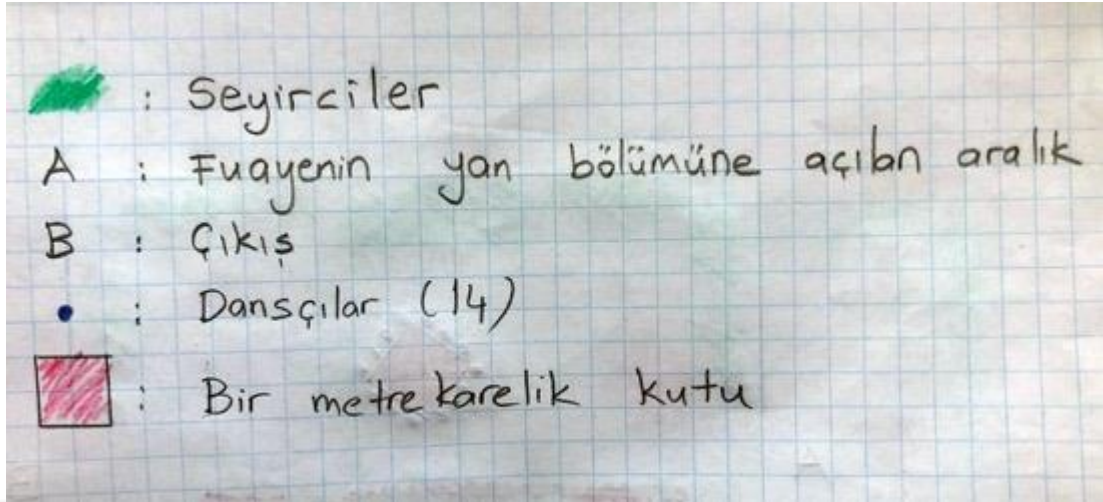 : Seyirciler
A : Fuayenin yan bölümüne açılan aralık
B : Çıkış
• : Dansçılar (14)
: Bir metrekarelik kutu